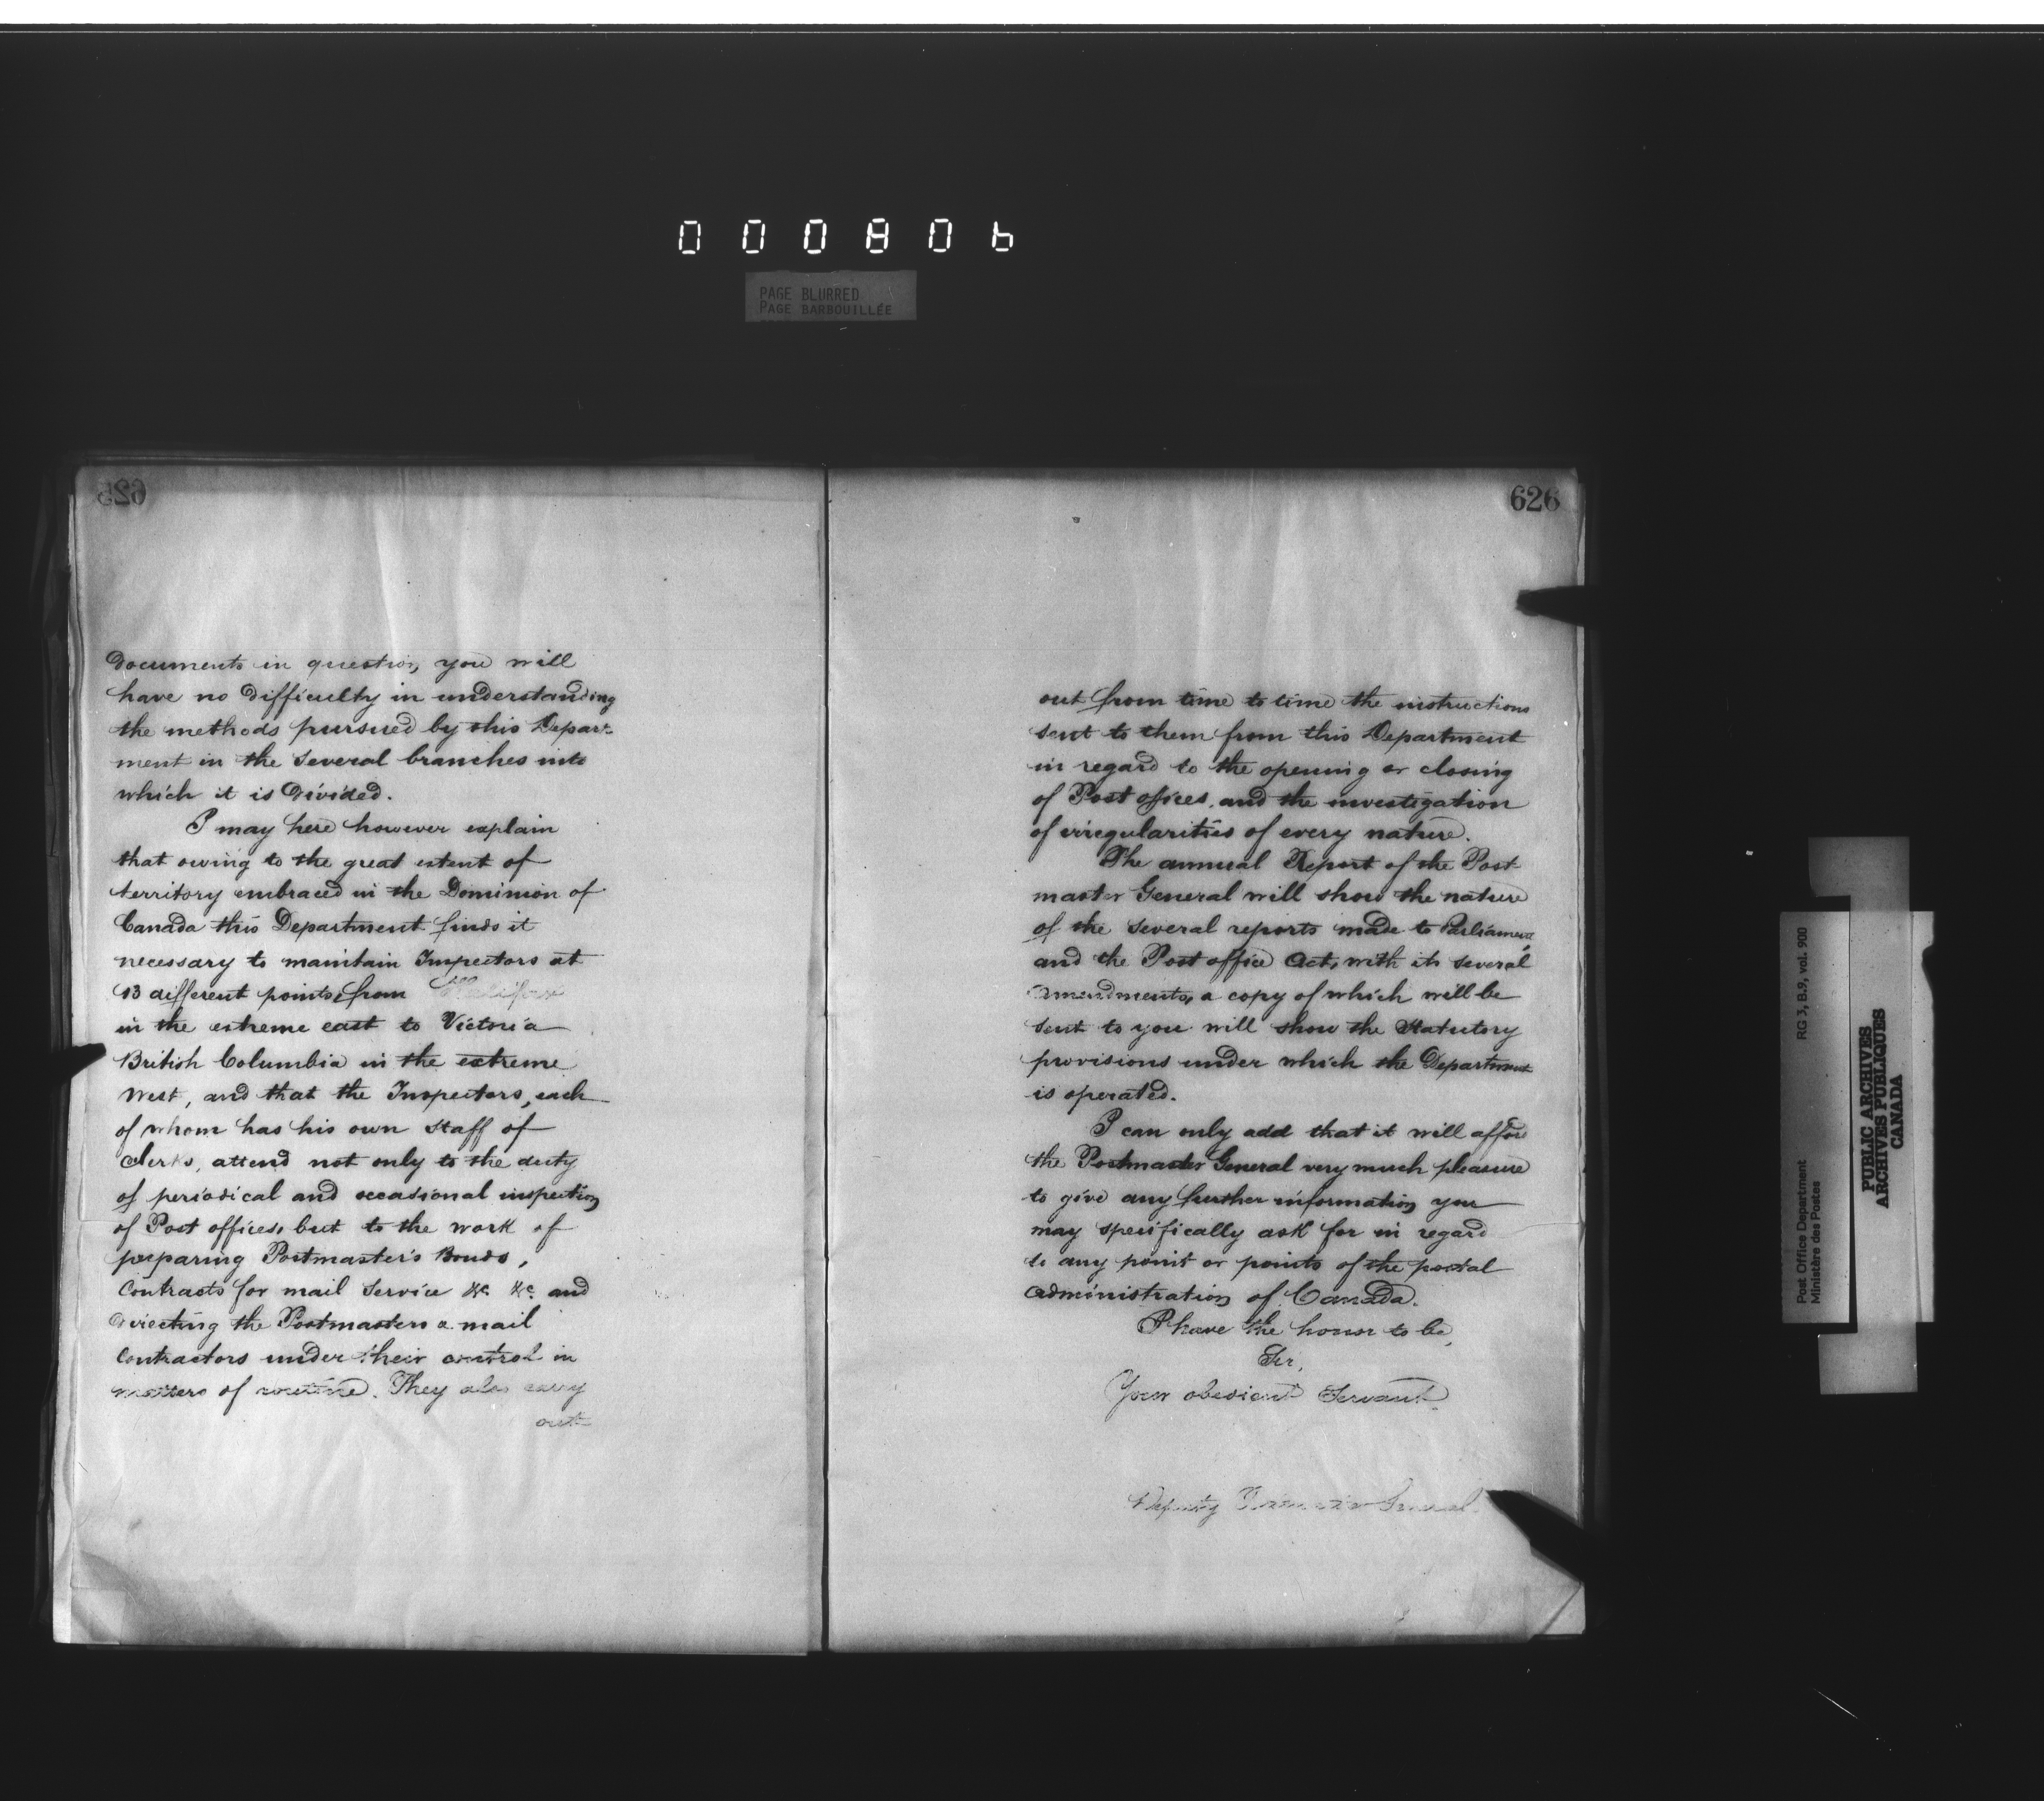 000806
PAGE BLURRED
PAGE BARBOUILLÉE
625
Documents in question, you will
have no difficulty in understanding
the methods pursued by this Depart-
ment in the several branches into
which it is divided.
I may here however explain
that owing to the great extent of
territory embraced in the Dominion of
Canada this Department finds it
necessary to maintain Inspectors at
13 different points, from Halifax
in the extreme east to Victoria
British Columbia in the extreme
West, and that the Inspectors, each
of whom has his own staff of
clerks, attend not only to the duty
of periodical and occasional inspection
of Post offices, but to the work of
preparing Postmaster's Bonds,
Contracts for mail service &c. &c. and
directing the Postmasters a mail
contractors under their control in
matters of routine. They also carry
out
626
out from time to time the instructions
sent to them from this Department
in regard to the opening or closing
of Post offices, and the investigation
of irregularities of every nature.
The annual Report of the Post-
master General will show the nature
of the several reports made to Parliament
and the Post office Act, with its several
amendments, a copy of which will be
sent to you will show the Statutory
provisions under which the Department
is operated.
I can only add that it will afford
the Postmaster General very much pleasure
to give any further information you
may specifically ask for in regard
to any point or points of the postal
administration of Canada.
I have the honor to be,
Sir,
Your obedient Servant.
Deputy Postmaster General.
Post Office Department
Ministère des Postes
RG 3, B.9, vol. 900
PUBLIC ARCHIVES
ARCHIVES PUBLIQUES
CANADA